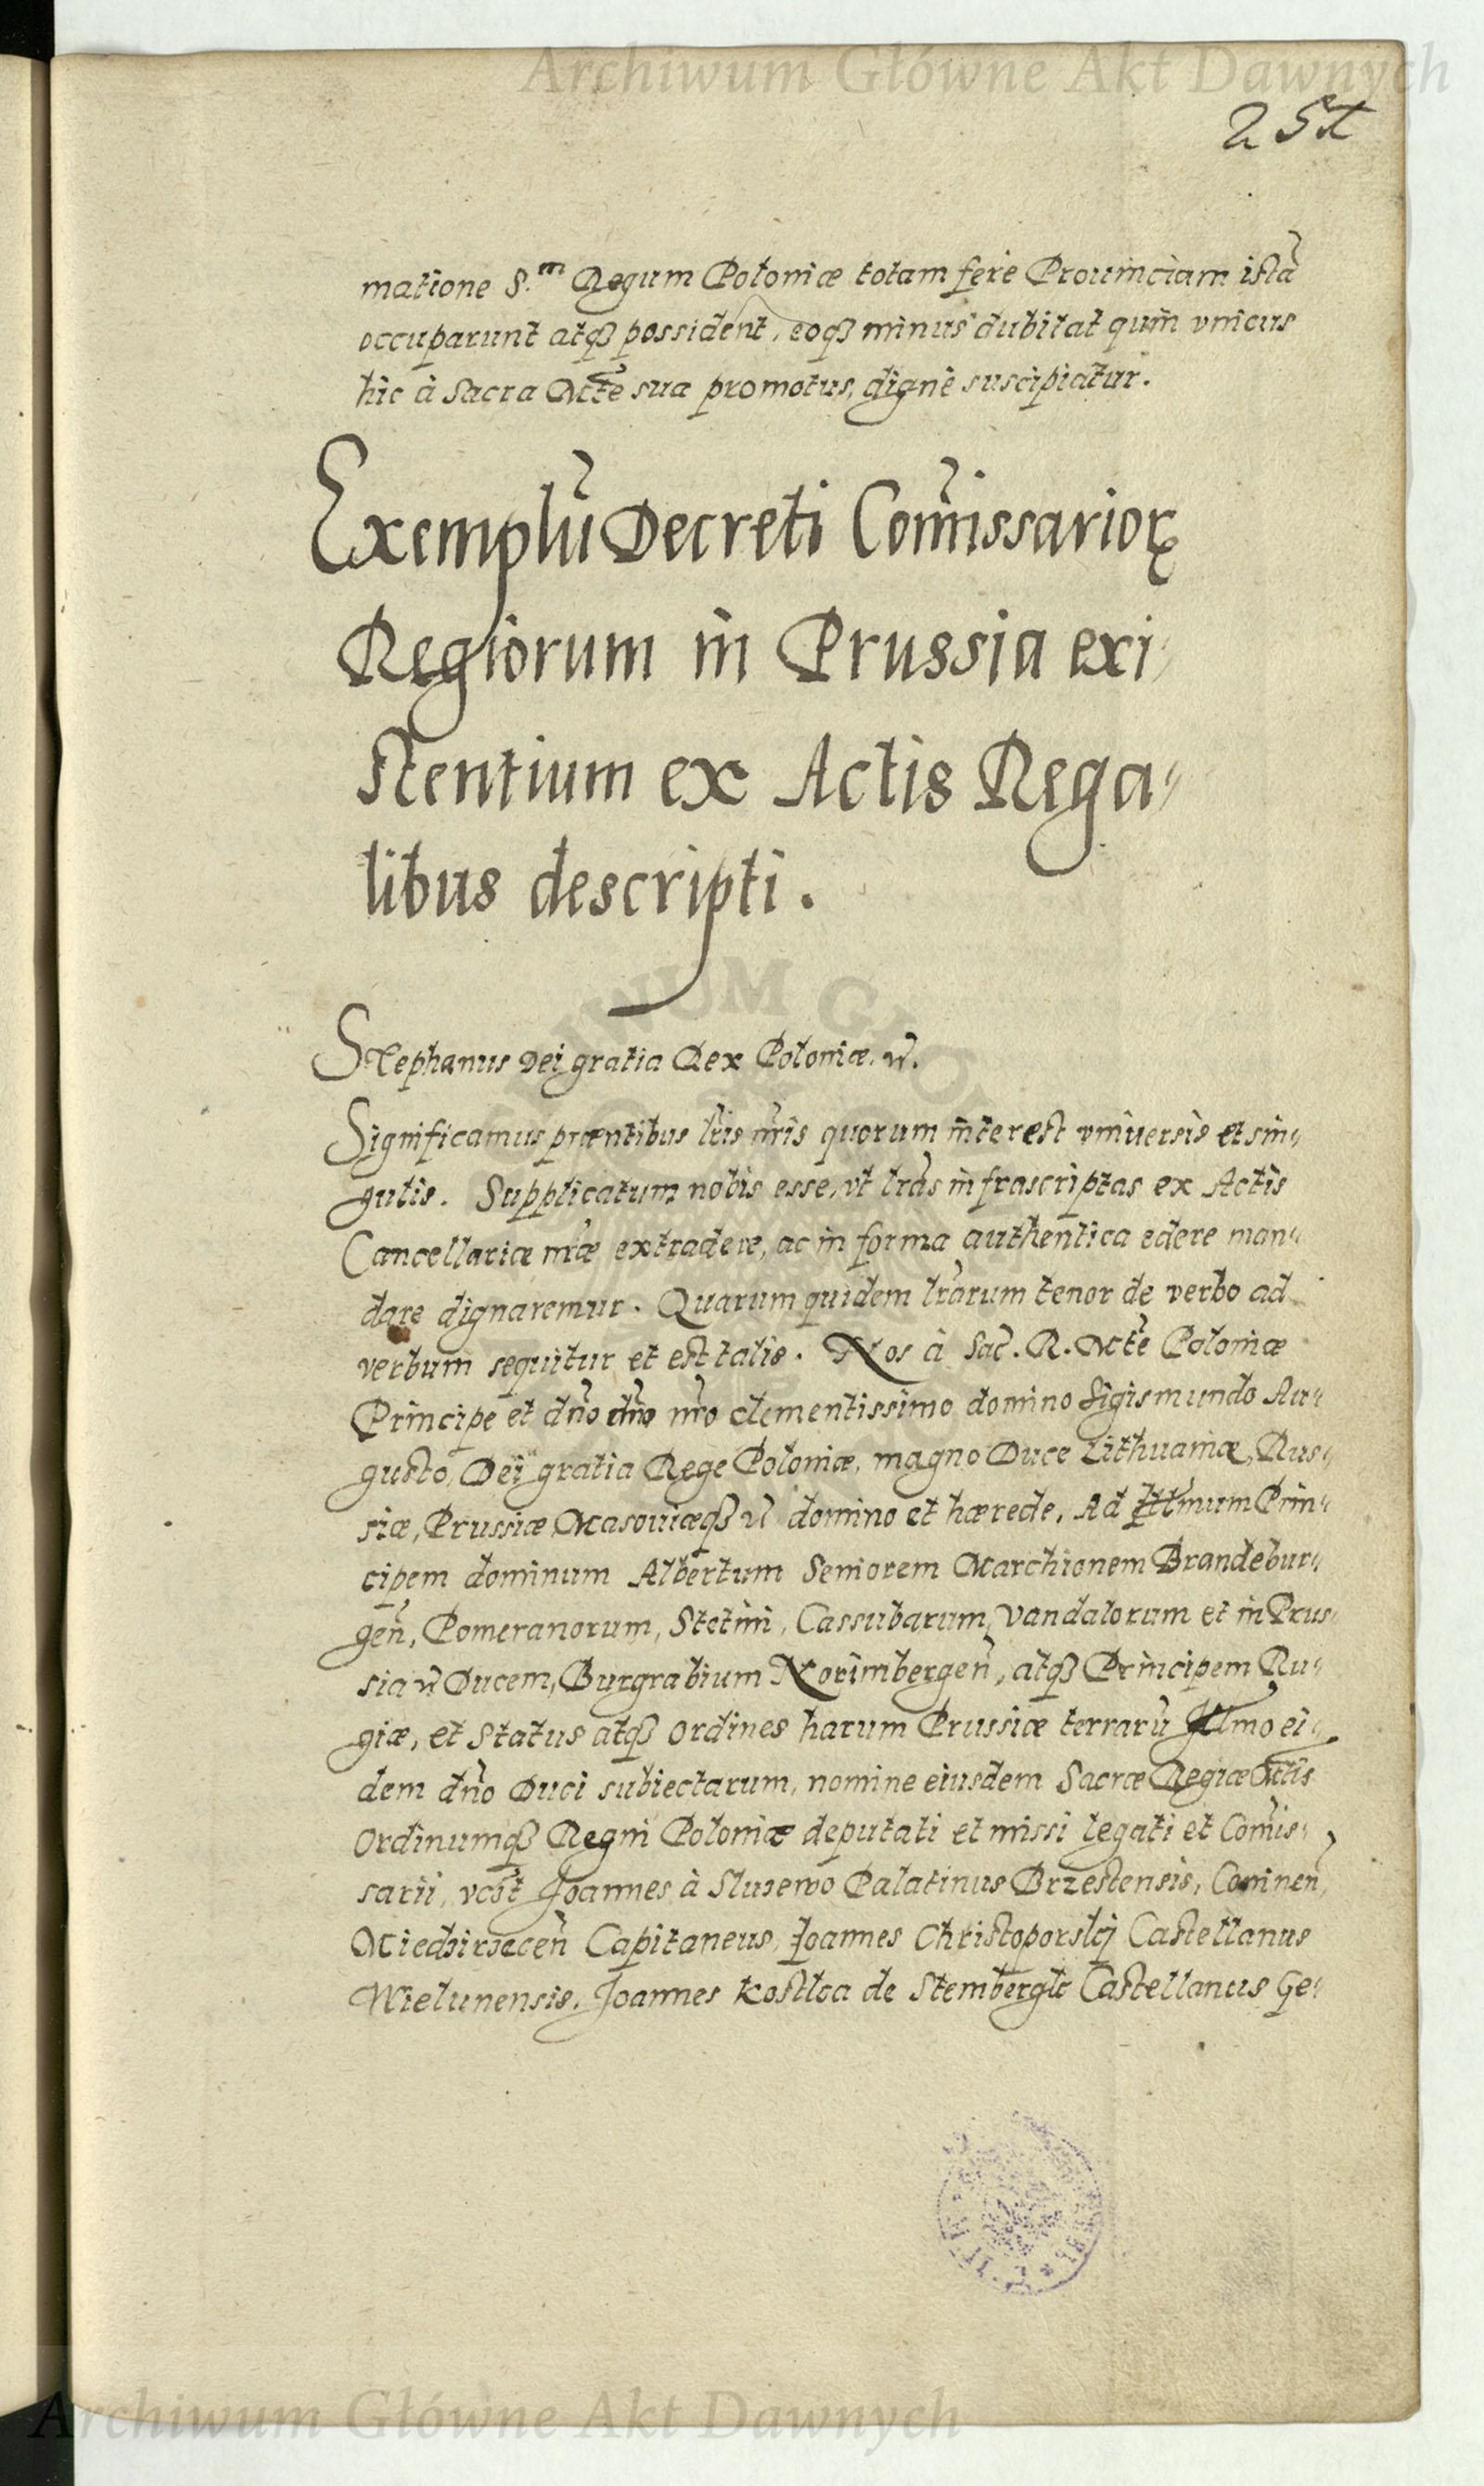 Archiwum Główne Akt Dawnych
251
matione S.m Regum Poloniæ totam fere Prouinciam istã
occuparunt atqꝫ possident, eoqꝫ minus dubitat quin vnicus
hic à Sacra Mtte sua promotus, dignè suscipiatur.
Exemplũ Decreti Com̃issarioꝝ
Regiorum in Prussia exi-
stentium ex Actis Rega-
libus descripti.
Stephanus Dei gratia Rex Poloniæ. etc.
Significamus præntibus lris nr̃is quorum interest vniuersis et sin-
gulis. Supplicatum nobis esse, vt lras infrascriptas ex Actis
Cancellariæ nræ extradere, ac in forma authentica edere man-
dare dignaremur. Quarum quidem lrarum tenor de verbo ad
verbum sequitur et est talis. Nos à Sac. R. Mtte Poloniæ
Principe et dño dño nr̃o clementissimo domino Sigismundo Au-
gusto, Dei gratia Rege Poloniæ, magno Duce Lithuaniæ, Rus-
siæ, Prussiæ, Masouiæqꝫ etc domino et hærede, Ad Illmum Prin-
cipem dominum Albertum Seniorem Marchionem Brandebur-
geñ, Pomeranorum, Stetini, Cassubarum, Vandalorum et in Prus-
sia etc Ducem, Burgrabium Norimbergeñ, atqꝫ Principem Ru-
giæ, et Status atqꝫ Ordines harum Prussiæ terrarũ Illmo ei-
dem dño Duci subiectarum, nomine eiusdem Sacræ Regiæ Mttis
Ordinumqꝫ Regni Poloniæ deputati et missi legati et Com̃is-
sarii, Joannes à Sluzewo Palatinus Brzestensis, Conineñ,
Miedzirzeceñ Capitaneus, Joannes Christoporskj Castellanus
Wielunensis, Joannes Kostka de Stembergk Castellanus Ge-
Archiwum Główne Akt Dawnych